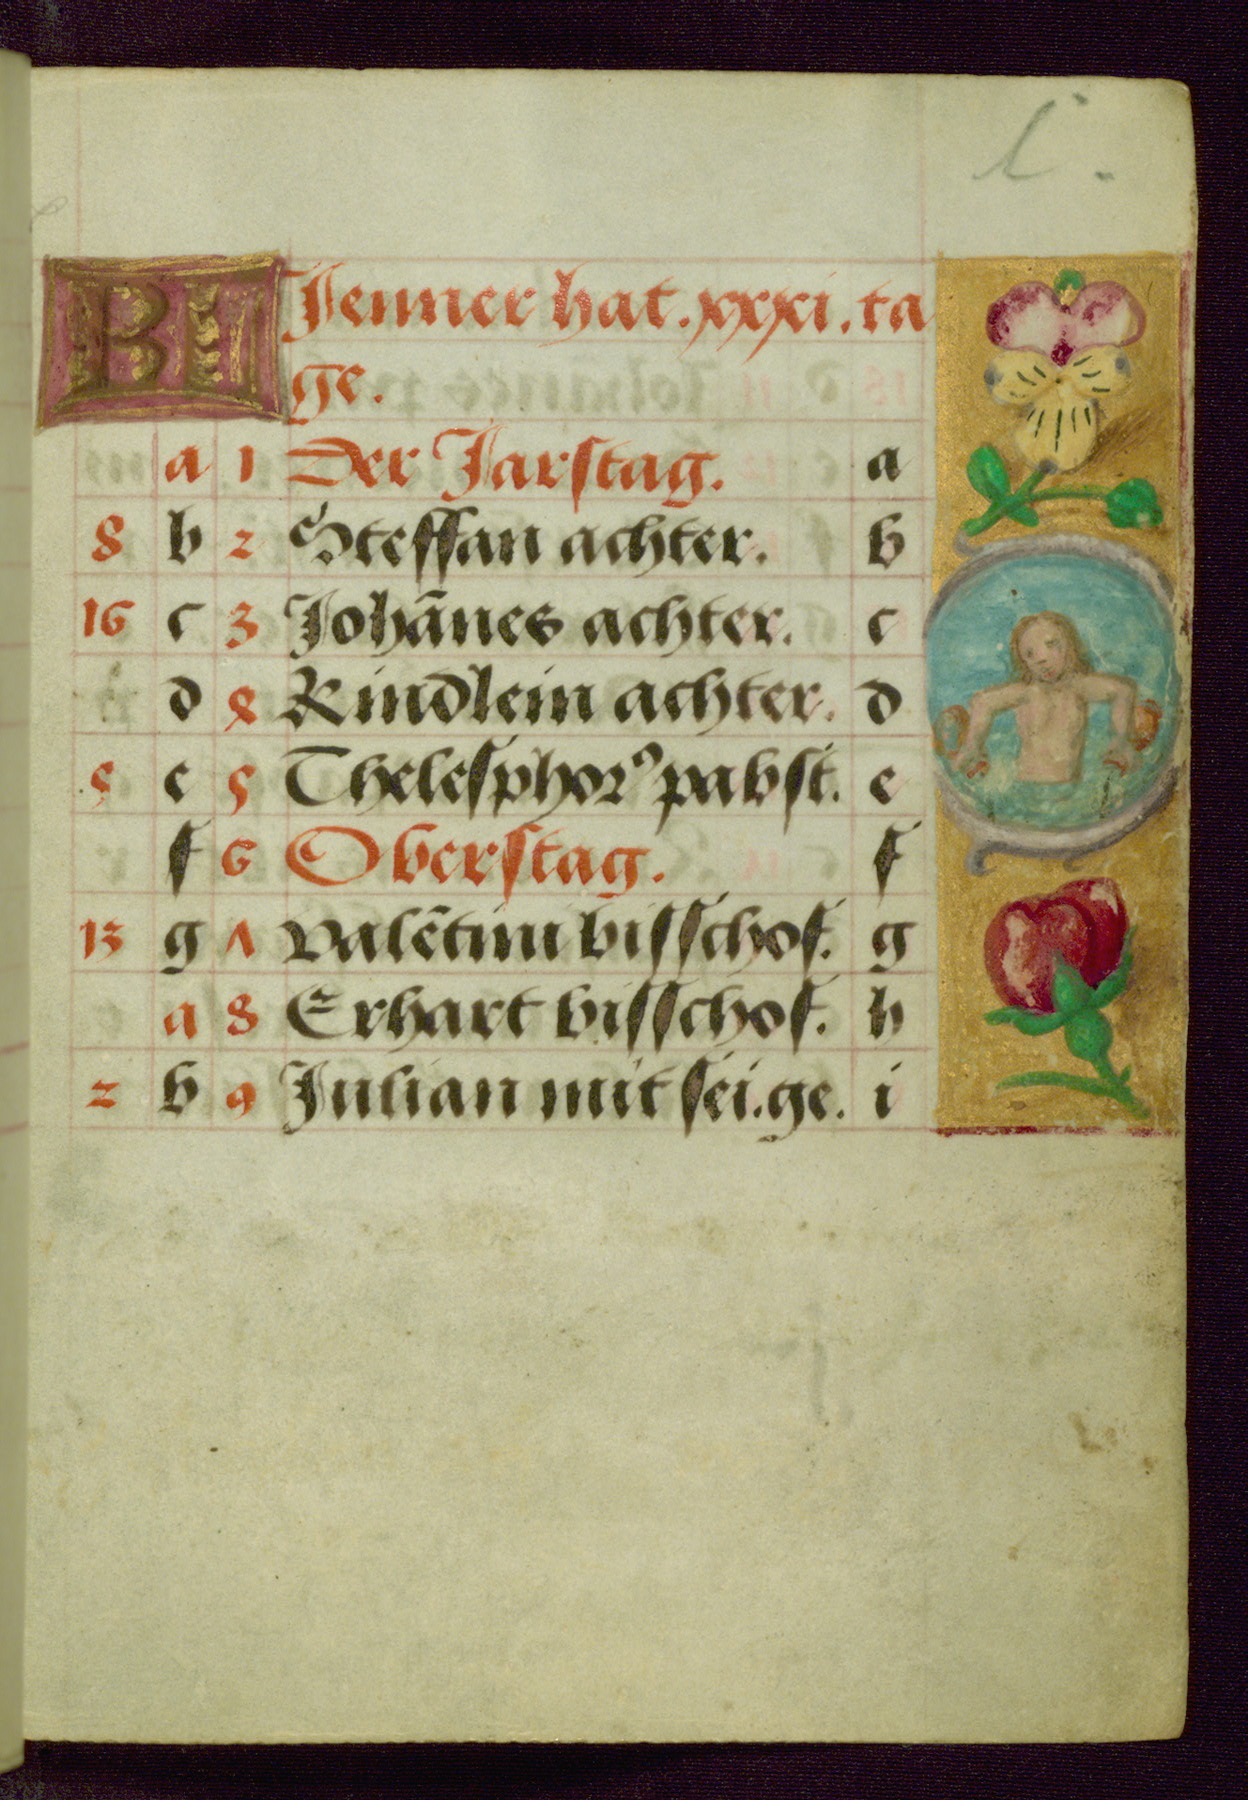 Jenner hat .xxxi. ta
ge.
a 1 Der Jarstag. a
8 b 2 Steffan achter. b
16 c 3 Johānes achter. c
d 4 Kindlein achter. d
5 e 5 Thelesphorꝰ pabst. e
f 6 Oberstag. f
13 g 7 valētini bisschof. g
a 8 Erhart bisschof. h
2 b 9 Julian mit sei. ge. i